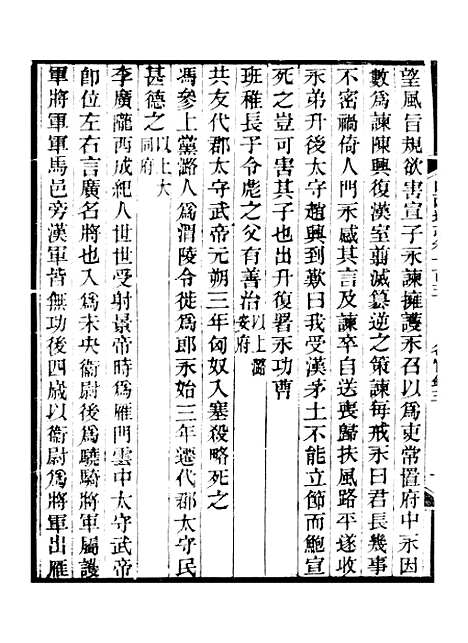 望風旨規欲害宣子永諫擁護永召以爲吏常置府中永因
數爲諫陳興復漢室翦滅簒逆之策諫每戒永曰君長幾事
不密禍倚人門永感其言及諫卒自送喪歸扶風路平遂收
永弟升後太守趙興到歎曰我受漢茅土不能立節而鮑宣
死之豈可害其子也出升復署永功曹
班稚長子令彪之父有善治以上潞安府
共友代郡太守武帝元朔三年匈奴入塞殺略死之
馮參上黨潞人爲渭陵令徙爲郎永始三年遷代郡太守民
甚德之以上大同府
李廣隴西成紀人世世受射景帝時爲雁門雲中太守武帝
卽位左右言廣名將也入爲未央衞尉後爲驍騎將軍屬護
軍將軍軍馬邑旁漢軍皆無功後四歲以衞尉爲將軍出雁